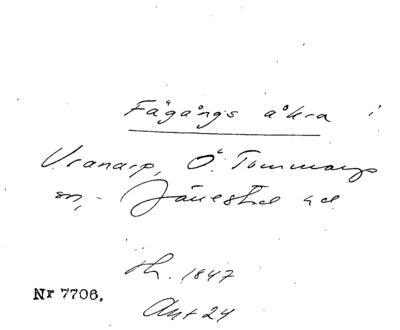 Fägångs åkra i
Vranarp, Ö. Tommarps
sn, - Järrestad hd
th. 1847
Nr 7706.
Ant 24